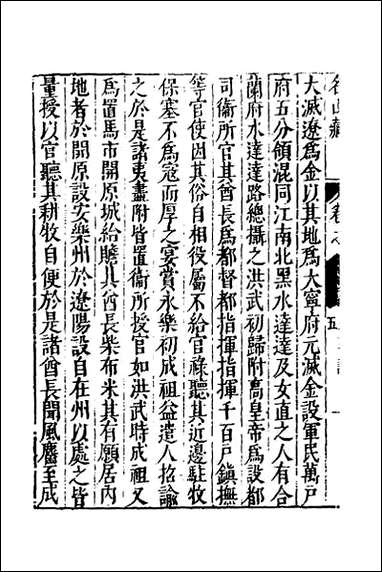 名山藏
五
大滅遼為金以其地為大寧府元滅金設軍民萬戶
府五分領混同江南北黑水達達及女直之人有合
蘭府水達達路總攝之洪武初歸附高皇帝為設都
司衛所官其酋長為都督都指揮指揮千百戶鎮撫
等官使因其俗自相役屬不給官祿聽其近邊駐牧
保塞不為冦而厚之宴賞永樂初成祖益遣人招諭
之於是諸夷盡附皆置衞所授官如洪武時成祖又
為置馬市開原城給贍其酋長柴布米其有願居內
地者於開原設安樂州於遼陽設自在州以處之皆
量授以官聽其耕牧自便於是諸酋長聞風麕至成